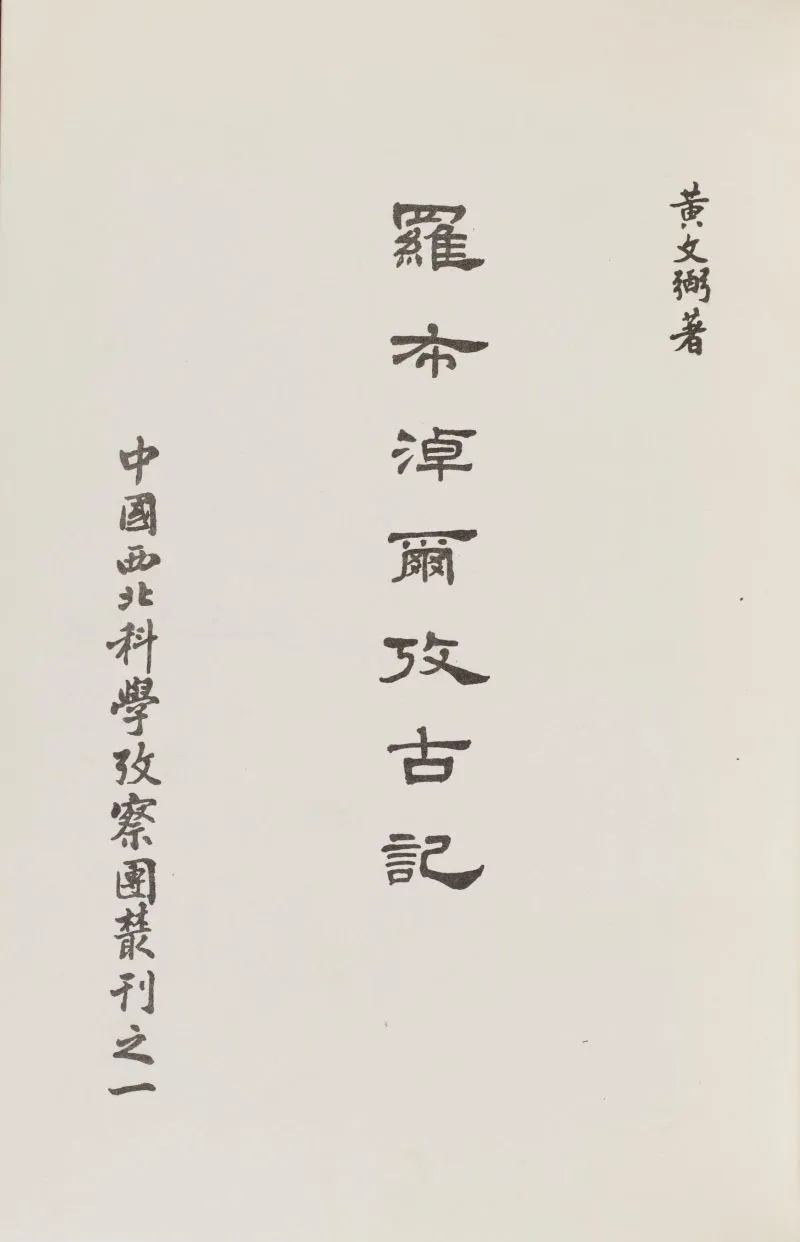 黃文弼著
羅布淖爾攷古記
中國西北科學攷察團叢刊之一